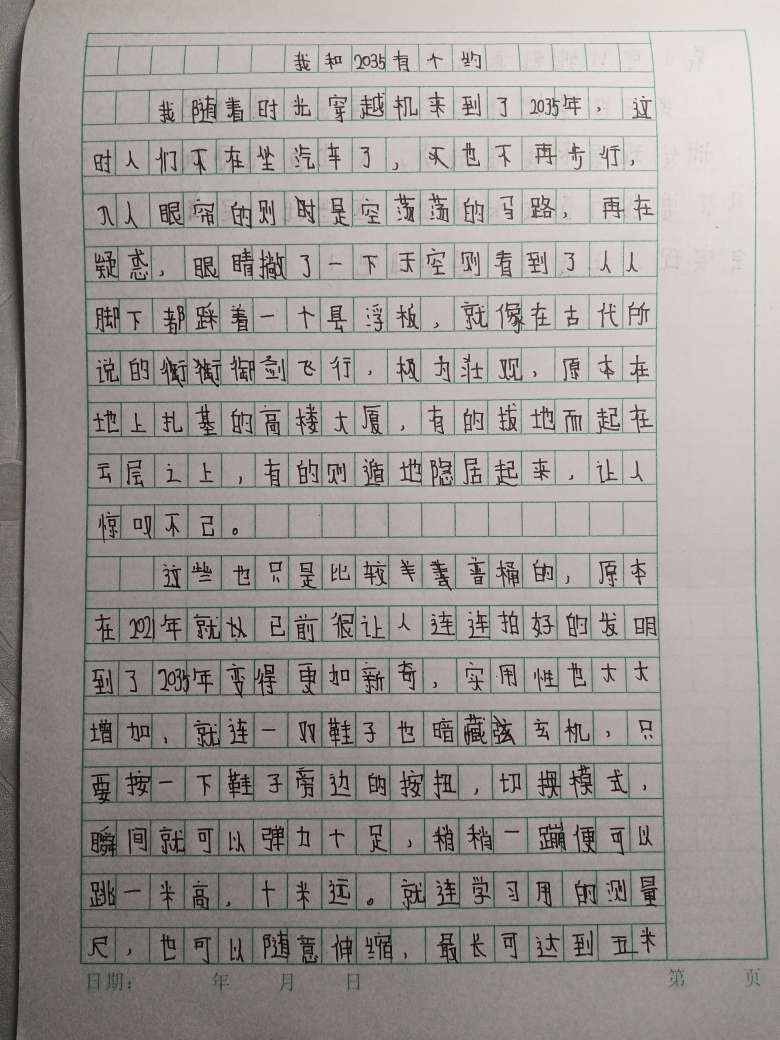 我和2035有个约
我随着时光穿越机来到了2035年，这
时人们不在坐汽车了，又也不再步行，
入人眼帘的则时是空荡荡的马路，再在
疑惑，眼睛撇了一下天空则看到了人人
脚下都踩着一个县浮板，就像在古代所
说的御剑飞行，极为壮观，原本在
地上扎基的高楼大厦，有的拔地而起在
云层之上，有的则遁地隐居起来，让人
惊叹不已。
这些也只是比较普桶的，原本
在2021年就以已前很让人连连拍好的发明
到了2035年变得更加新奇，实用性也大大
增加，就连一双鞋子也暗藏玄机，只
要按一下鞋子旁边的按扭，切换模式，
瞬间就可以弹力十足，稍稍一蹦便可以
跳一米高，十米远。就连学习用的测量
尺，也可以随意伸缩，最长可达到五米
日期： 年 月 日 第 页